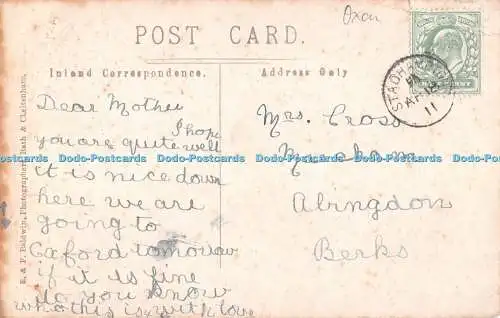 Oxon
POST CARD.
Inland Correspondence.
Address Only
STADHAM
AP 18
11
Dear Mother
I hope
you are quite well
it is nice down
here we are
going to
Oxford tomorrow
if it is fine
do you know
who this is with love
Mrs. Cross
Abingdon
Berks
E. & F. Baldwin, Photographers, Bath & Cheltenham.
Dodo-Postcards Dodo-Postcards Dodo-Postcards Dodo-Postcards Dodo-Postcards Dodo-Postcards